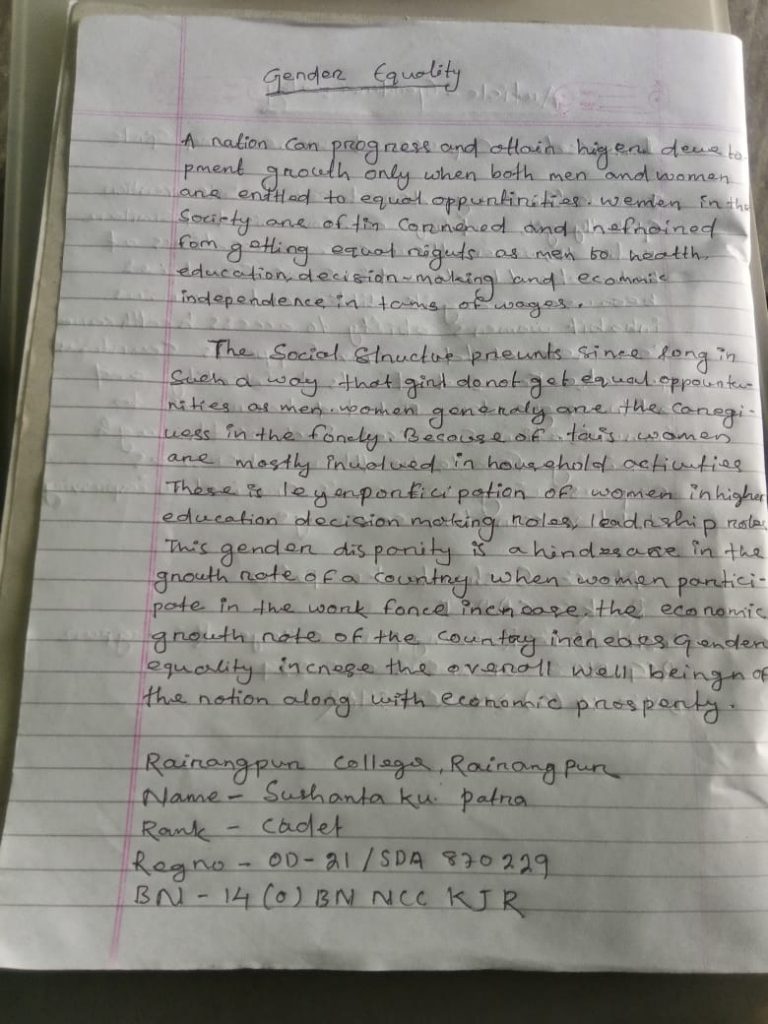 Gender Equality
A nation can progress and attain higen develo
pment grouth only when both men and women
are entitled to equal oppuntinities. wemen in the
Society are oftin connened and nefnained
fom getting equal niguts as men to heatth,
education, decision-making and ecommic
independence in tams of wages.
The Social Structup prieunts since long in
Such a way that ginl do not get equal oppountu-
nities as men. women generaly are the caregi-
uess in the fonely. Because of tais women
are mostly inuolued in household actiuties
These is leyenponticipation of women in higher
education decision making roles, leadrship role.
This gender disparity is a hindesare in the
grouth rate of a country when women partici-
pate in the work fonce increase the economic
grouth rate of the country increaes gender
equality increse the overall well beingn of
the nation along with economic prosperity.
Rairangpur College, Rairangpur
Name - Sushanta ku. patra
Rank - cadet
Regno - OD-21/SDA 870229
BN - 14 (O) BN NCC KJR